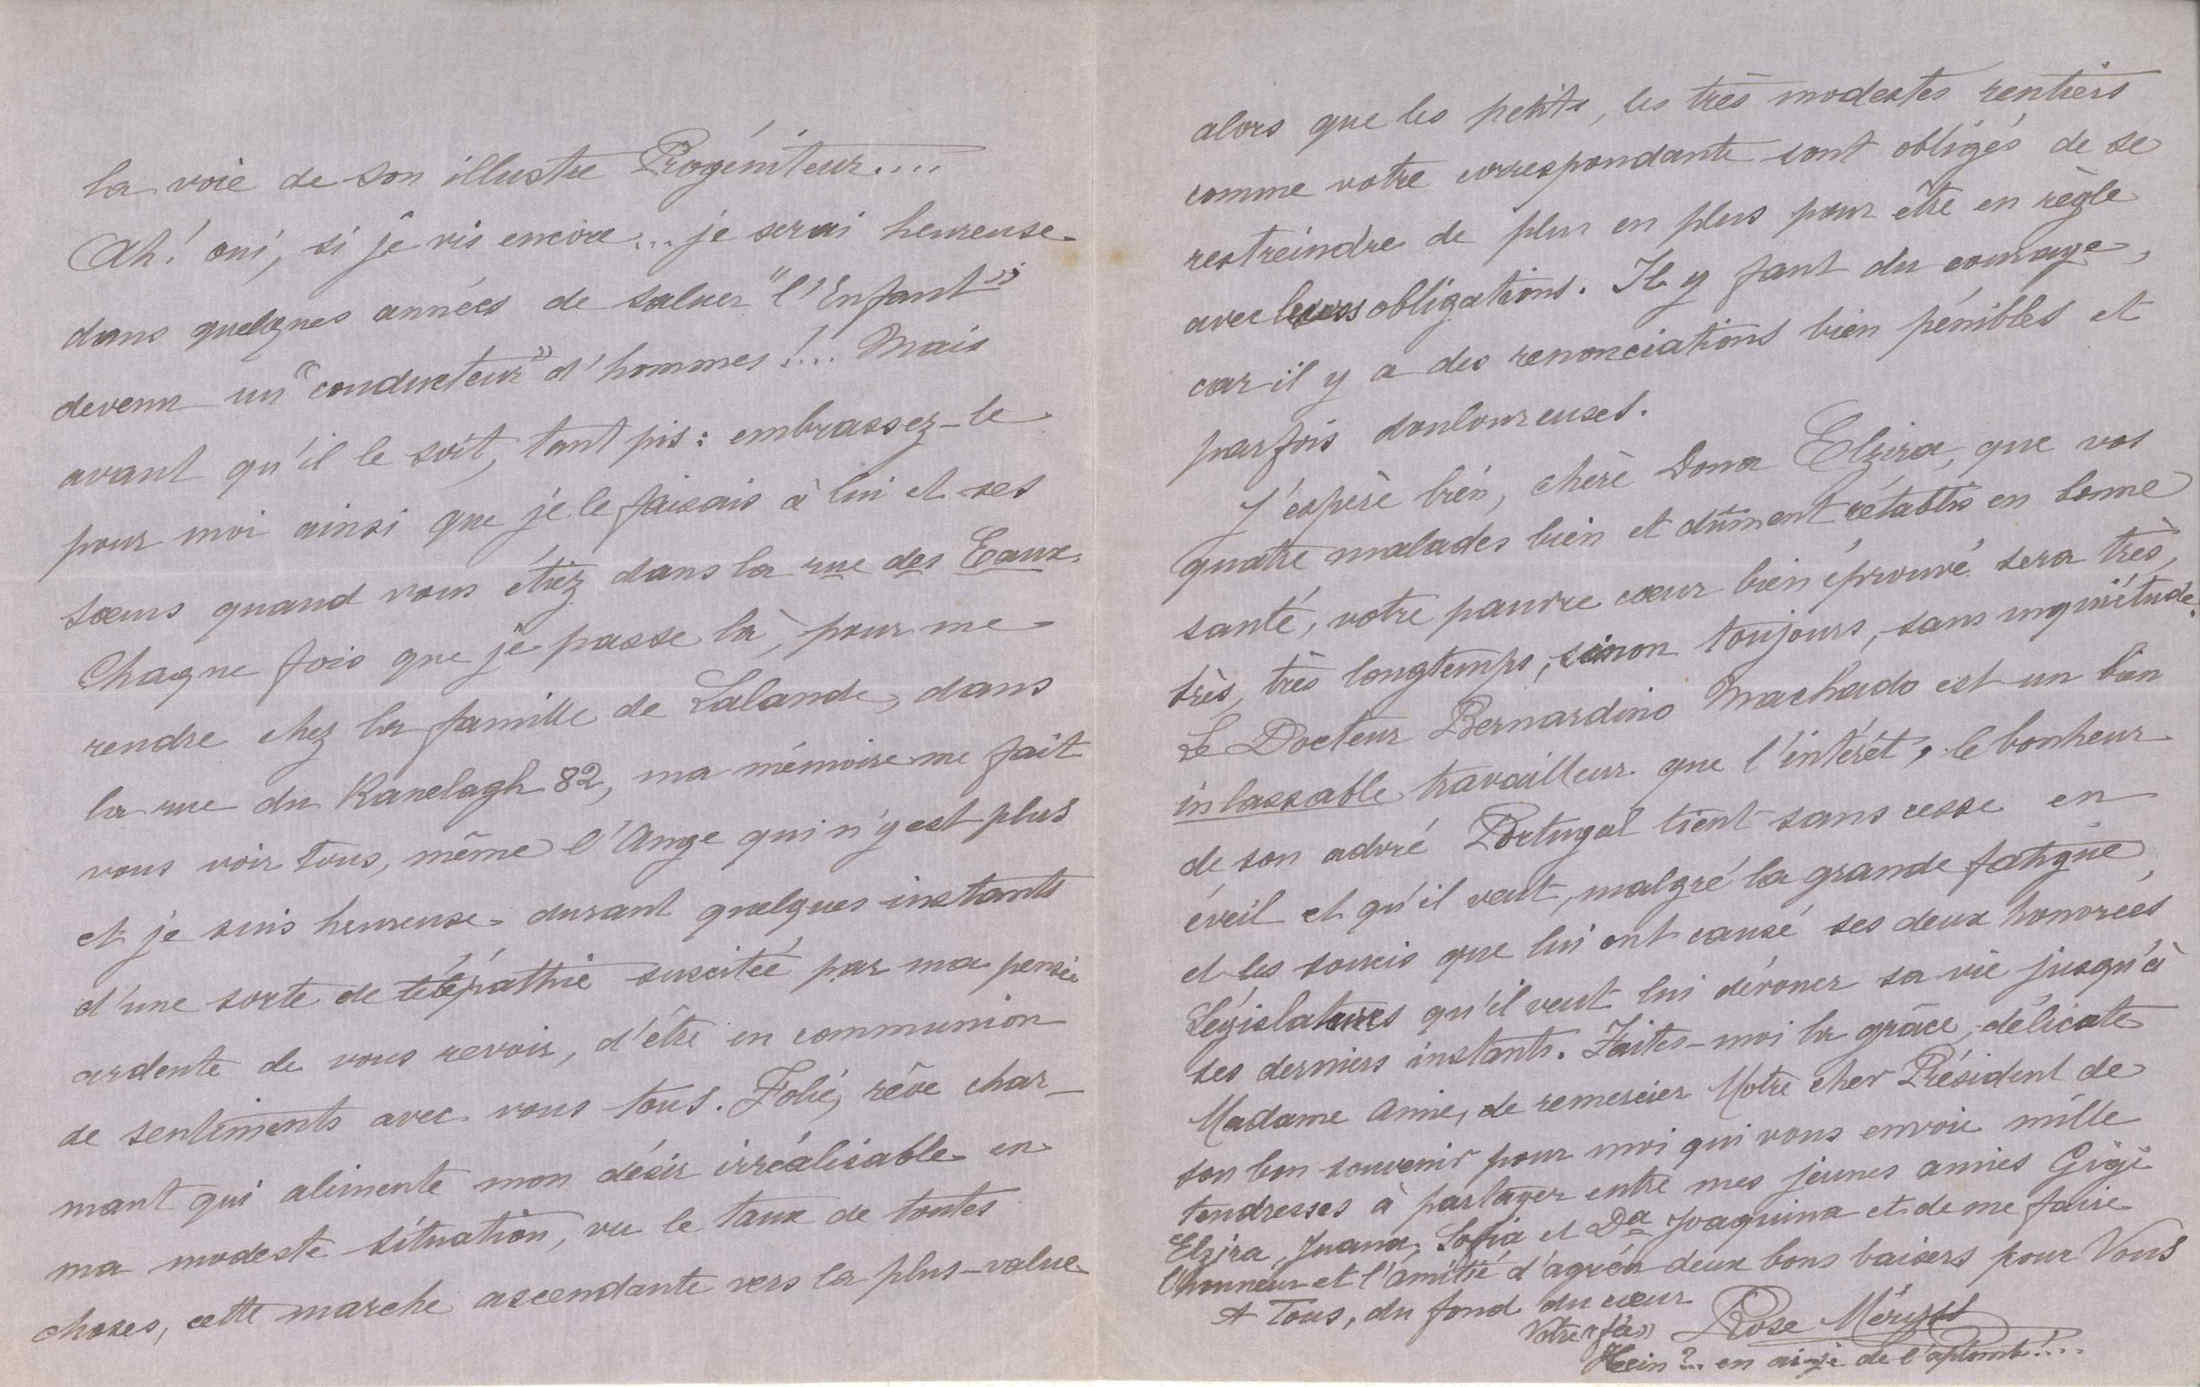 la voie de son illustre Progéniteur....
Ah! oui, si je vis encore... je serai heureuse
dans quelques années de saluer "l'Enfant"
devenu un "conducteur" d'hommes!... Mais
avant qu'il le soit, tant pis: embrassez-le
pour moi ainsi que je le faisais à lui et ses
sœurs quand vous étiez dans la rue des Eaux.
Chaque fois que je passe là, pour me
rendre chez la famille de Lalande, dans
la rue du Ranelagh 82, ma mémoire me fait
vous voir tous, même l'Ange qui n'y est plus
et je suis heureuse durant quelques instants
d'une sorte de télépathie suscitée par ma pensée
ardente de vous revoir, d'être en communion
de sentiments avec vous tous. Folie, rêve char-
mant qui alimente mon désir irréalisable en
ma modeste situation, vu le taux de toutes
choses, cette marche ascendante vers la plus-value
alors que les petits, les très modestes rentiers
comme votre correspondante sont obligés de se
restreindre de plus en plus pour être en règle
avec leurs obligations. Il y faut du courage,
car il y a des renonciations bien pénibles et
parfois douloureuses.
J'espère bien, chère Dona Elzira, que vos
quatre malades bien et dûment rétablis en bonne
santé, votre pauvre cœur bien éprouvé sera très,
très, très longtemps, sinon toujours, sans inquiétude.
Le Docteur Bernardino Machado est un bien
inlassable travailleur que l'intérêt, le bonheur
de son adoré Portugal tient sans cesse en
éveil et qu'il veut, malgré la grande fatigue,
et les soucis que lui ont causé ses deux honorées
Législatures qu'il veut lui dévouer sa vie jusqu'à
ses derniers instants. Faites-moi la grâce, délicate
Madame Amie, de remercier Notre cher Président de
son bon souvenir pour moi qui vous envoie mille
tendresses à partager entre mes jeunes amies Gigi
Elzira, Juana, Sofia et Da Joaquina et de me faire
l'honneur et l'amitié d'agréer deux bons baisers pour Vous
A Tous, du fond du cœur
Votre Rose
Hein?... en ai-je de l'aplomb!....